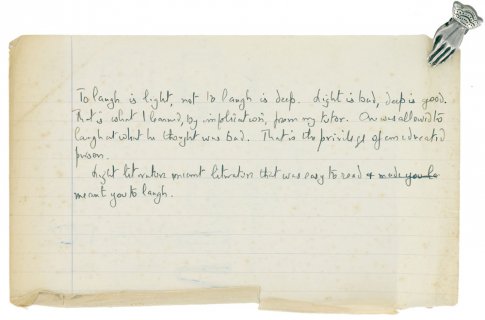 To laugh is light, not to laugh is deep. Light is bad, deep is good.
That is what I learned, by implication, from my tutor. One was allowed to
laugh at what he thought was bad. That is the privilege of an educated
person.
Light literature meant literature that was easy to read & made you la
meant you to laugh.